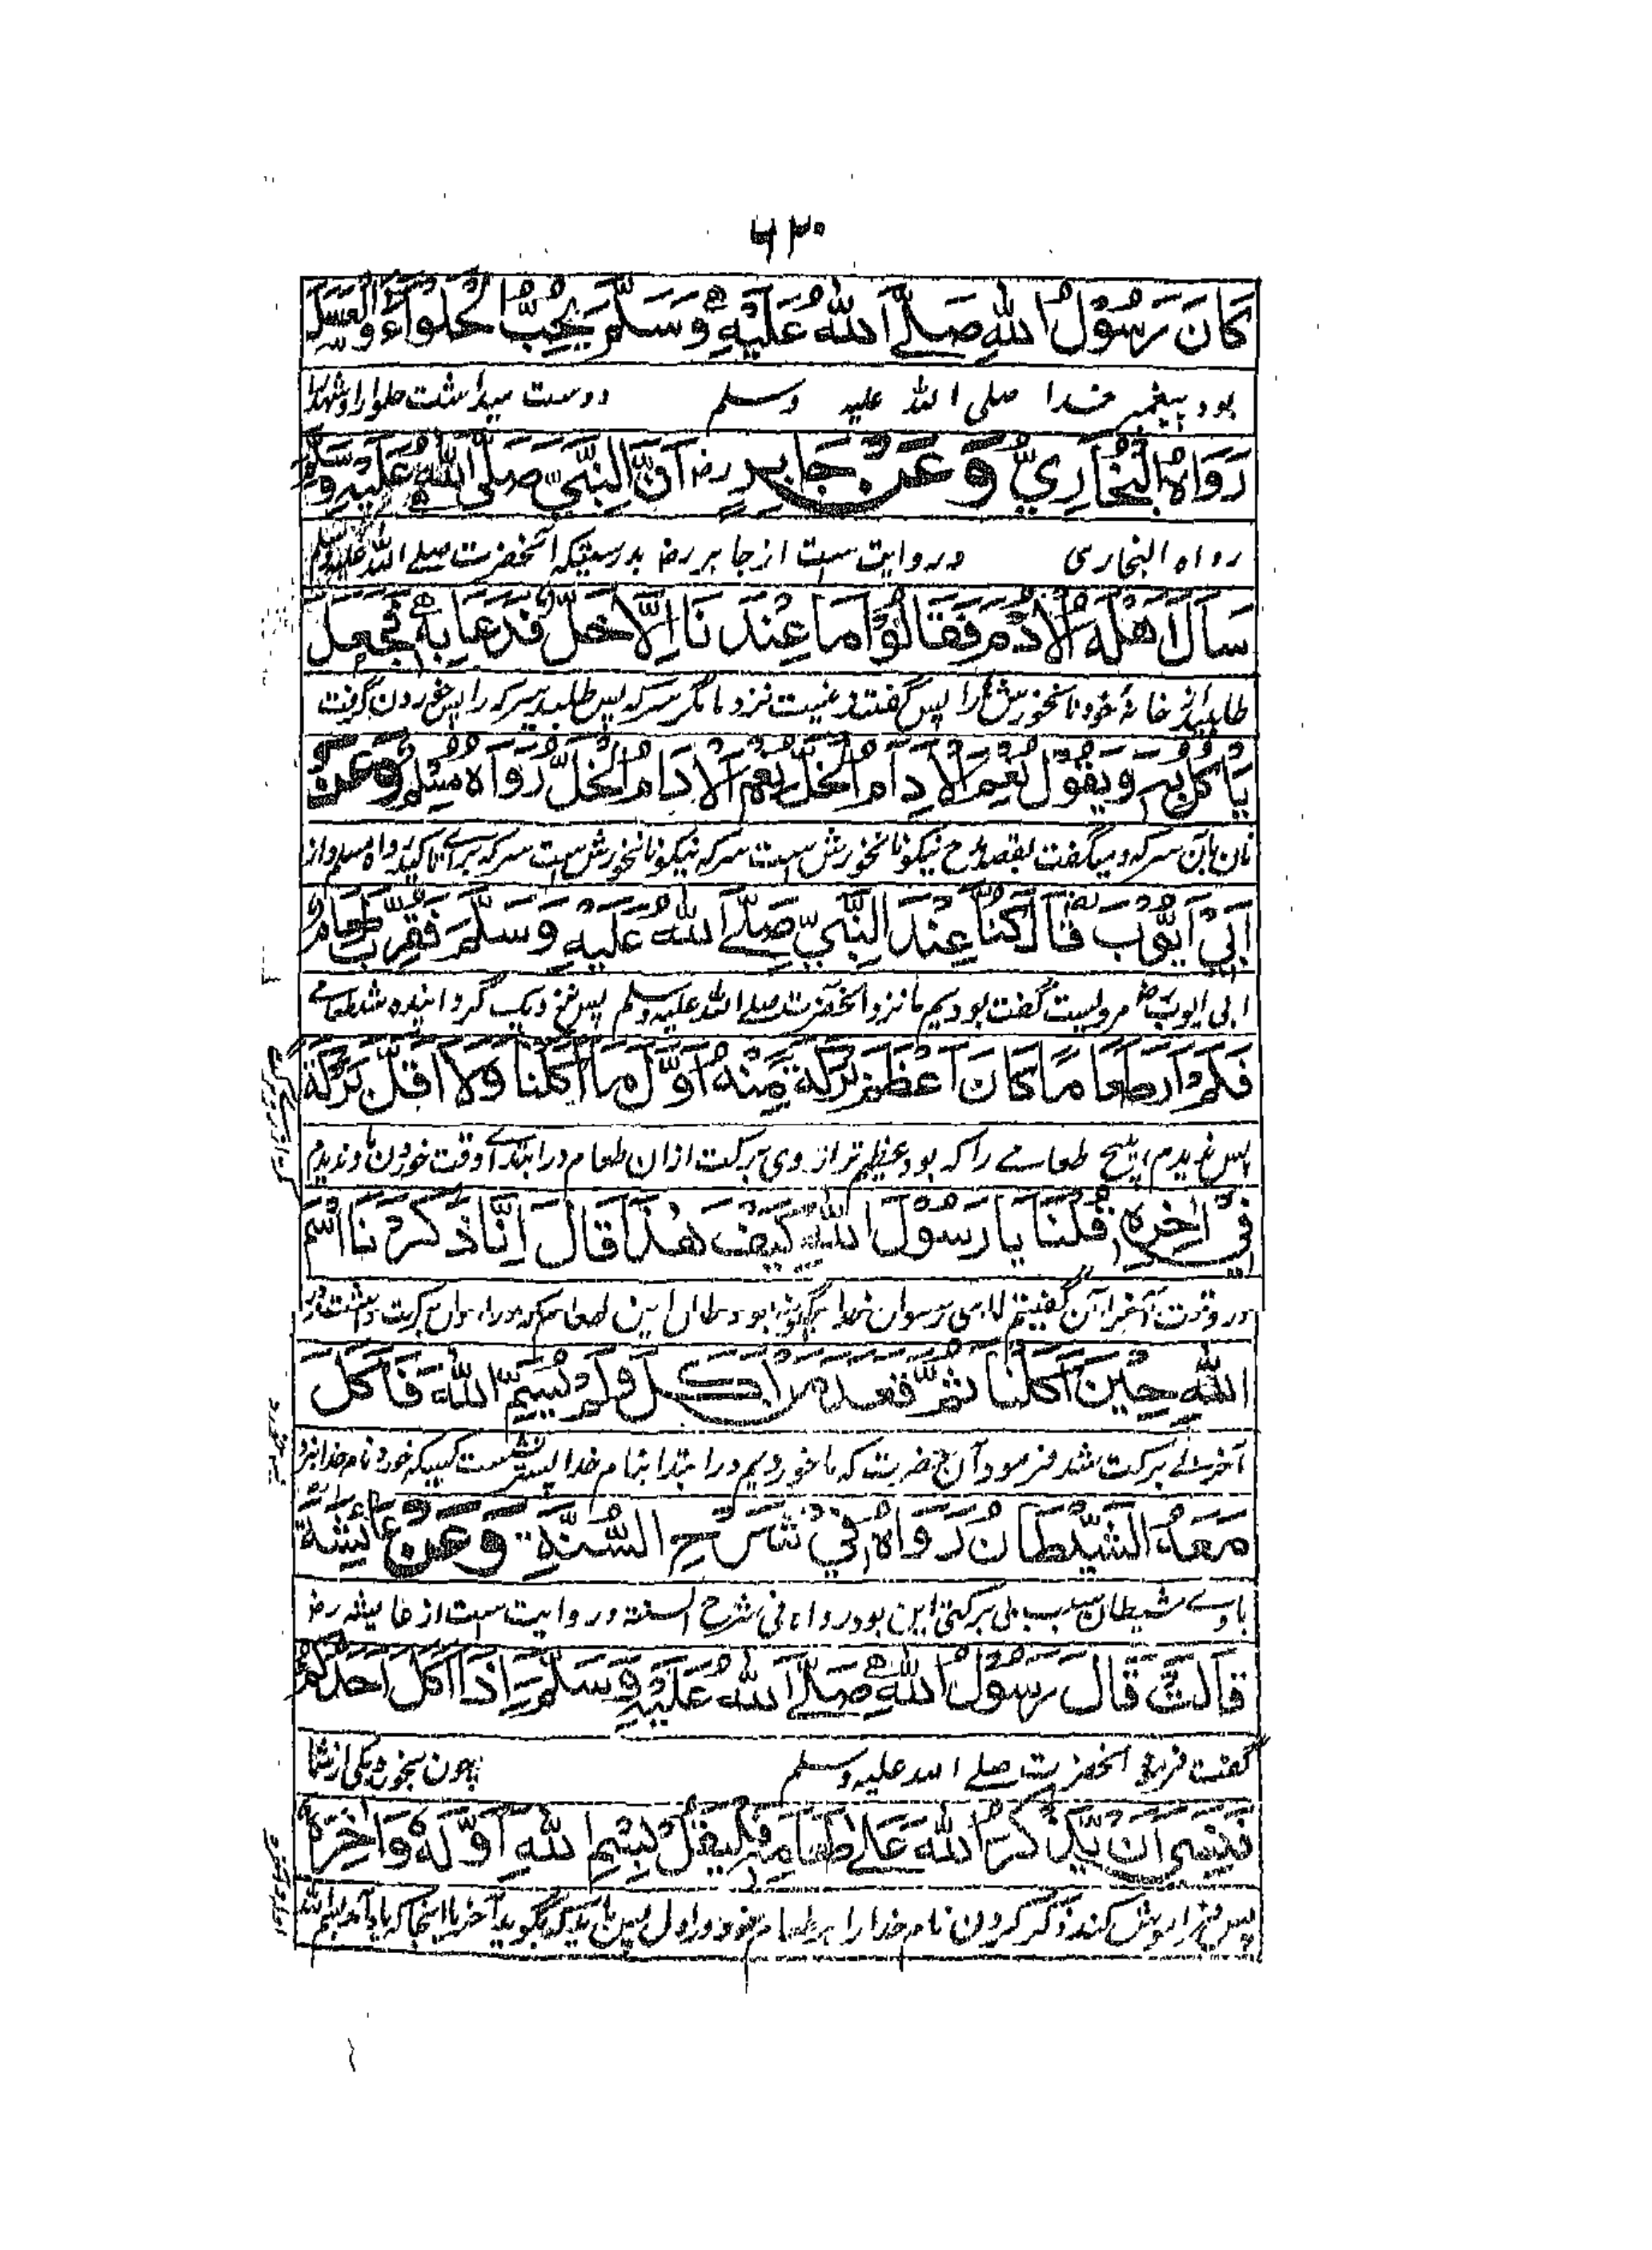 ۶۲۰
كَانَ رَسُوْلُ اللّٰهِ صَلَّے اللّٰهُ عَلَيْهِ وَسَلَّمَ يُحِبُّ الْحَلْوَاءَ وَالْعَسَلَ
بود پیغمبر خدا صلی اللہ علیہ وسلم دوست میداشت حلوا را و شہد را
رَوَاهُ الْبُخَارِيُّ وَعَنْ جَابِرٍ رض اَنَّ النَّبِيَّ صَلَّى اللّٰهُ عَلَيْهِ وَسَلَّمَ
رواه البخاری و روایت ست از جابر رض بدرستیکہ آنحضرت صلے اللہ علیہ وسلم
سَاَلَ اَهْلَهُ الْاُدْمَ فَقَالُوْا مَا عِنْدَنَا اِلَّا خَلٌّ فَدَعَا بِهٖ فَجَعَلَ
طلبید از خانۂ خود نانخورش را پس گفتند نیست نزد ما مگر سرکہ پس طلبید سرکہ را پس خوردن گرفت
يَاْكُلُ بِهٖ وَيَقُوْلُ نِعْمَ الْاِدَامُ الْخَلُّ نِعْمَ الْاِدَامُ الْخَلُّ رَوَاهُ مُسْلِمٌ وَعَنْ
نان بآن سرکہ و میگفت بقصد مدح نیکو نانخورش ست سرکہ نیکو نانخورش ست سرکہ برائے تاکید رواه مسلم و از
اَبِيْ اَيُّوْبَ رض قَالَ كُنَّا عِنْدَ النَّبِيِّ صَلَّے اللّٰهُ عَلَيْهِ وَسَلَّمَ فَقُرِّبَ طَعَامٌ
ابی ایوب رض مرویست گفت بودیم ما نزد آنحضرت صلے اللہ علیہ وسلم پس نزدیک گردانیده شد طعامے
فَلَمْ اَرَ طَعَامًا كَانَ اَعْظَمَ بَرَكَةً مِّنْهُ اَوَّلَ مَا اَكَلْنَا وَلَا اَقَلَّ بَرَكَةً
پس ندیدم ہیچ طعامے را کہ بود عظیم تر از روی برکت ازان طعام در ابتدائے وقت خوردن ما و ندیدم
فِيْ اٰخِرِهٖ قُلْنَا يَا رَسُوْلَ اللّٰهِ كَيْفَ هٰذَا قَالَ اِنَّا ذَكَرْنَا اسْمَ
در وقت آخر آن گفتیم ما ای رسول خدا چگونہ بود حال این طعام کہ در اول برکت داشت و در
اللّٰهِ حِيْنَ اَكَلْنَا ثُمَّ قَعَدَ مَنْ اَكَلَ وَلَمْ يُسَمِّ اللّٰهَ فَاَكَلَ
آخر بے برکت شد فرمود آن حضرت کہ ما خوردیم در ابتدا بنام خدا پستر نشست کسیکہ خورد نام خدا نبرد
مَعَهُ الشَّيْطَانُ رَوَاهُ فِيْ شَرْحِ السُّنَّةِ وَعَنْ عَائِشَةَ
باوے شیطان سبب بی برکتی این بود رواه فی شرح السنۃ و روایت ست از عائشہ رض
قَالَتْ قَالَ رَسُوْلُ اللّٰهِ صَلَّے اللّٰهُ عَلَيْهِ وَسَلَّمَ اِذَا اَكَلَ اَحَدُكُمْ
گفت فرمود آنحضرت صلے اللہ علیہ وسلم چون بخورد یکی از شما
فَنَسِيَ اَنْ يَّذْكُرَ اللّٰهَ عَلٰے طَعَامِهٖ فَلْيَقُلْ بِسْمِ اللّٰهِ اَوَّلَهٗ وَاٰخِرَهٗ
پس فراموش کند ذکر کردن نام خدا را بر طعام خود در اول پس باید کہ بگوید آخر یا اینجا کہ یاد آمد بسم اللہ